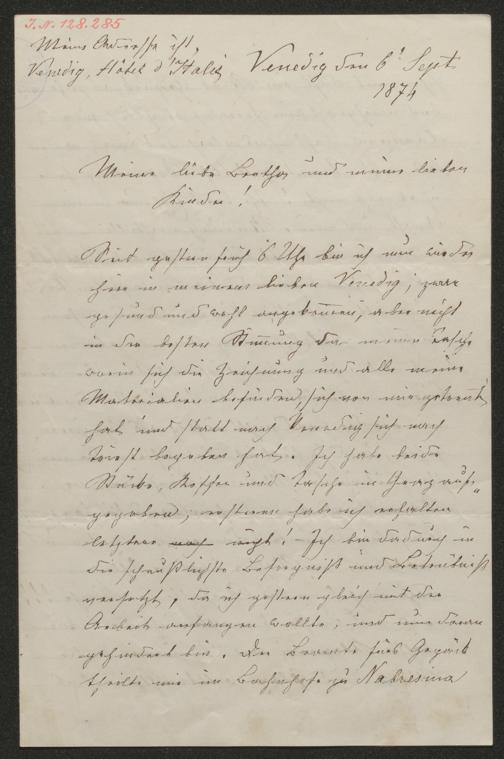 I.N. 128.285
Meine Adresse ist,
Venedig, Hôtel d'Italie
Venedig den 6t Sept
1874
Meine liebe Bertha und meine lieben
Kinder!
Seit gestern früh 6 Uhr bin ich nun wieder
hier in meinem lieben Venedig; zwar
gesund und wohl angekommen, aber nicht
in der besten Stimmung da meine Tasche
worin sich die Zeichnung und alle meine
Materialien befinden, sich von mir getrennt
hat und statt nach Venedig sich nach
Triest begeben hat. Ich habe beide
Stücke, Koffer und Tasche in Graz auf-
gegeben; ersteren habe ich erhalten
letztere noch nicht! - Ich bin dadurch in
die scheußlichste Besorgniß und Betrübniß
versetzt, da ich gestern gleich mit der
Arbeit anfangen wollte, und nun daran
gehindert bin. Der Beamte fürs Gepäck
theilte mir im Bahnhofe zu Nabresina